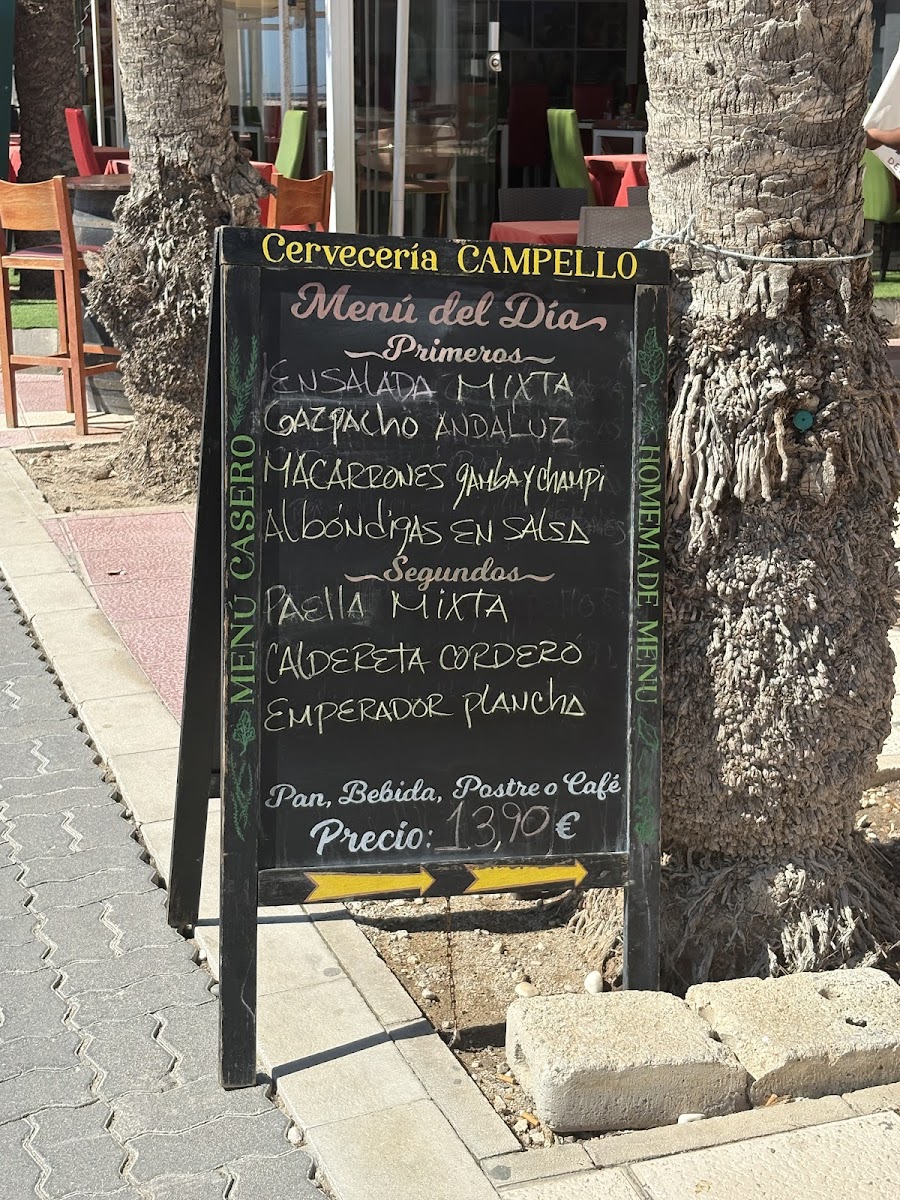 Cervecería CAMPELLO
Menú del Día
Primeros
ENSALADA MIXTA
GAZPACHO ANDALUZ
MACARRONES gamba y champi
Albóndigas EN SALSA
Segundos
PAELLA MIXTA
CALDERETA CORDERO
EMPERADOR plancha
Pan, Bebida, Postre o Café
Precio: 13,90 €
MENÚ CASERO
HOMEMADE MENU